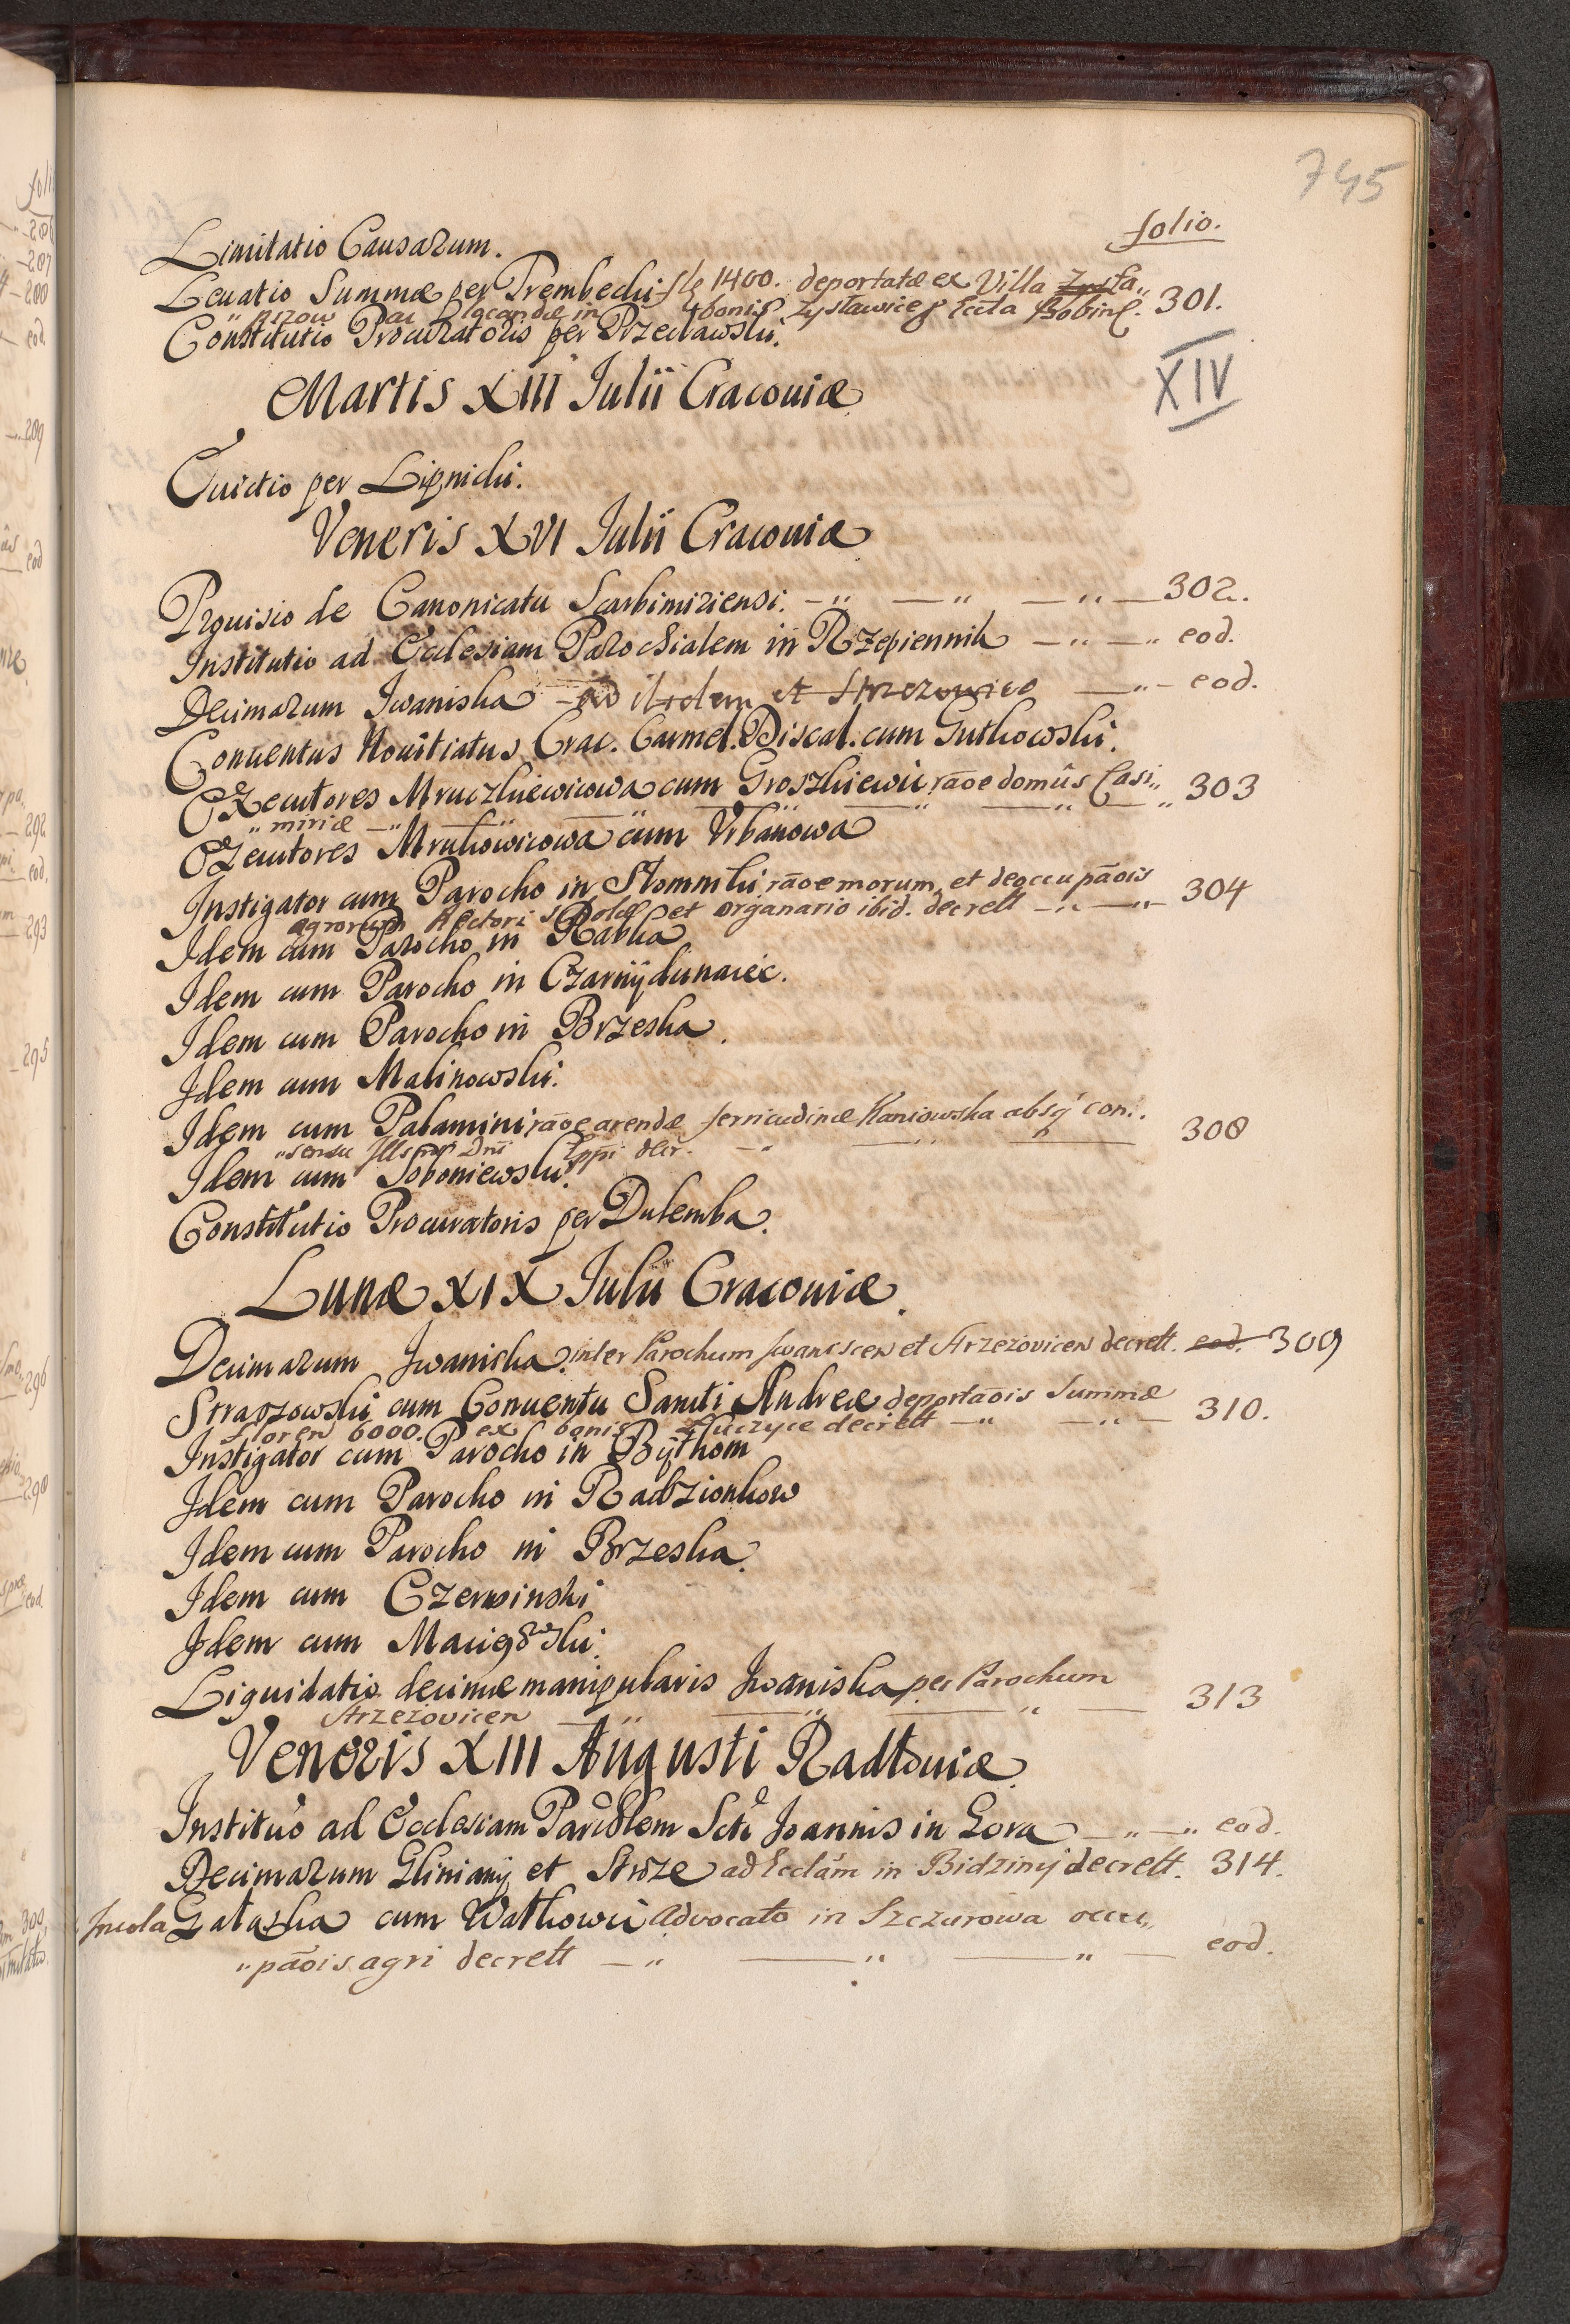 745
folio.
Limitatio Causarum.
Levatio Summæ per Trembecki fls 1400. deportatæ ex Villa Zysta„
„ Aszow ac locandæ in bonis Zysławice Eccla Bobin. 301.
Constitutio Procuratoris per Przecławski.
XIV
Martis XIII Julii Cracoviæ
Evictio per Lipnicki.
Veneris XVI Julii Cracoviæ
Provisio de Canonicatu Scarbimiriensi. 302.
Institutio ad Ecclesiam Parochialem in Rzepiennik eod.
Decimarum Iwaniska ibidem et Strzezowice eod.
Conventus Novitiatus Crac. Carmel. Discal. cum Gutkowski.
Executores Mruczkiewicowa cum Groszkiewic rāōe domûs Casi„ 303
„ miriæ
Executores Mrukowicowa cum Urbanowa
Instigator cum Parocho in Stomniki rāōe morum et deoccupāōis
agrorum Rectori Scholæ et organario ibid. decrett 304
Idem cum Parocho in Rabka
Idem cum Parocho in Czarnÿdunaiec.
Idem cum Parocho in Brzeska.
Idem cum Malinowski.
Idem cum Palamini rāōe arendæ Kaniowska absq con„
„sensu Illsmi Dni Eppi 308
Idem cum Soboniewski.
Constitutio Procuratoris per Dulemba.
Lunæ XIX Julii Cracoviæ.
Decimarum Iwaniska. inter Parochum Iwaniscen et Strzezovicen decrett. eod. 309
Straszowski cum Conventu Sancti Andreæ deportāōis Summæ
floren 6000. ex bonis Łuczyce decrett 310.
Instigator cum Parocho in Bÿthom
Idem cum Parocho in Radzionkow
Idem cum Parocho in Brzeska.
Idem cum Czerwinski
Idem cum Maciejowski.
Liquidatio decimæ manipularis Iwaniska per Parochum
Strzezovicen 313
Veneris XIII Augusti Radłoviæ.
Instituo ad Ecclesiam Parochlem Scti Joannis in Gora eod.
Decimarum Gliniany et Stroze ad Ecclam in Bidziny decrett. 314.
Incola Gałaszka cum Watkowic Advocato in Szczurowa occu„
„pāōis agri decrett eod.